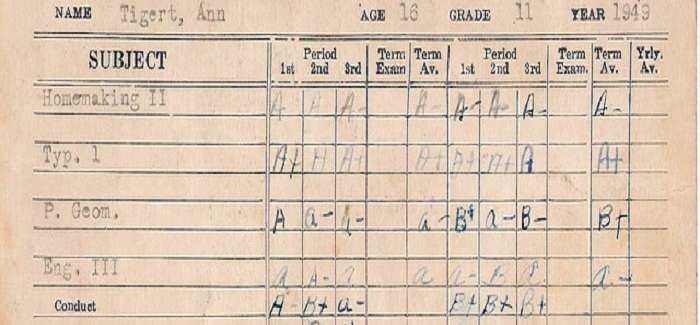 NAME Tigert, Ann AGE 16 GRADE 11 YEAR 1949
SUBJECT 1st Period 2nd 3rd Term Exam Term Av. 1st Period 2nd 3rd Term Exam. Term Av. Yrly. Av.
Homemaking II A A A- A- A- A- A- A-
Typ. 1 A+ A A+ A+ A+ A+ A A+
P. Geom. A a- a- B+ a- B- B+
Eng. III a A- a a- B a a-
Conduct A- B+ a- B+ B+ B+